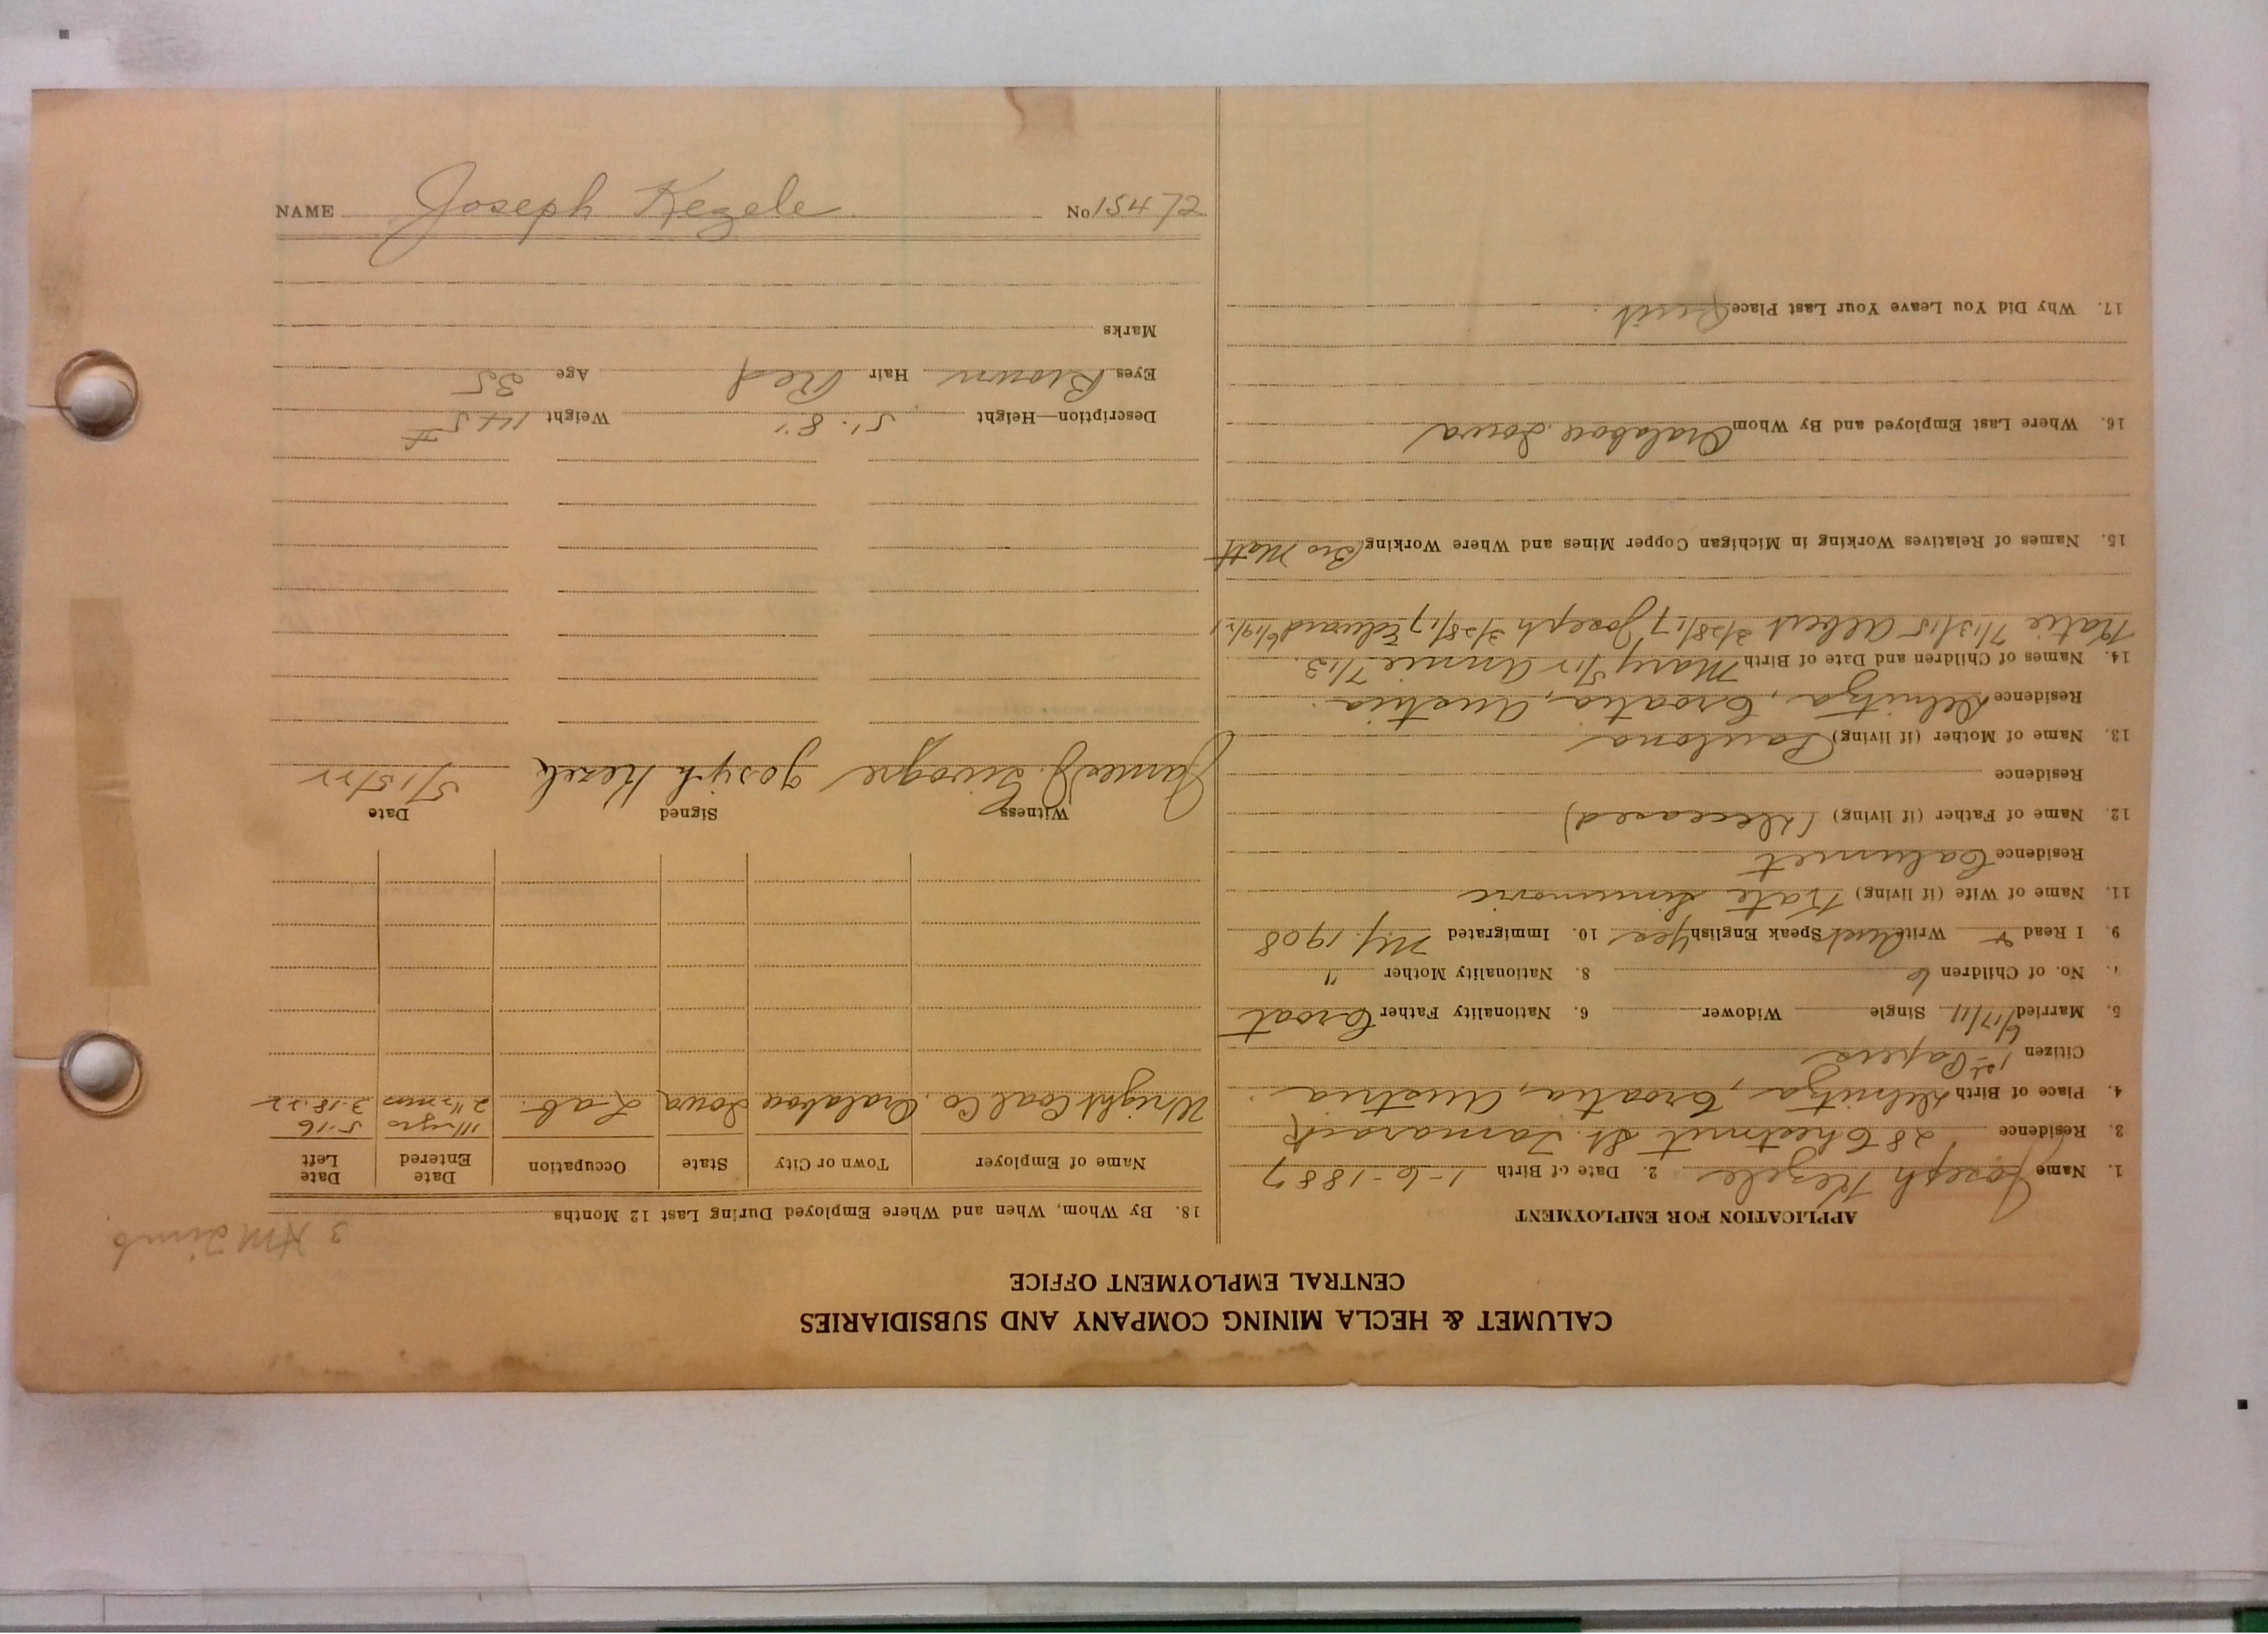 CALUMET & HECLA MINING COMPANY AND SUBSIDIARIES
CENTRAL EMPLOYMENT OFFICE
APPLICATION FOR EMPLOYMENT
1. Name Joseph Kezele 2. Date of Birth 1-6-1887
3. Residence 28 Chestnut St. Tamarack
4. Place of Birth Delnitza, Croatia, Austria
Citizen 1st Papers
5. Married 6/17/11 Single Widower 6. Nationality Father Croat
7. No. of Children 6 8. Nationality Mother "
9. I Read & Write Aust Speak English Yes 10. Immigrated 1908
11. Name of Wife (if living) Kate Simunovic
Residence Calumet
12. Name of Father (if living) (Deceased)
Residence
13. Name of Mother (if living) Paulona
Residence Delnitza, Croatia, Austria
14. Names of Children and Date of Birth Mary 5/12 Annie 7/13
Katie 7/13/15 Albert 3/28/17 Joseph 3/28/17 Edward 6/19/21
15. Names of Relatives Working in Michigan Copper Mines and Where Working Bro Matt
16. Where Last Employed and By Whom Iowa
17. Why Did You Leave Your Last Place Quit
3 Timb
18. By Whom, When and Where Employed During Last 12 Months
Name of Employer Town or City State Occupation Date Entered Date Left
5-16
Wright Coal Co. Iowa Lab. 2 1/2 mos 3-18-22
Witness Signed Date
James J. Joseph Kezele 5/15/22
Description—Height 5'. 8" Weight 145 #
Eyes Brown Hair Red Age 35
Marks
NAME Joseph Kezele No 15472